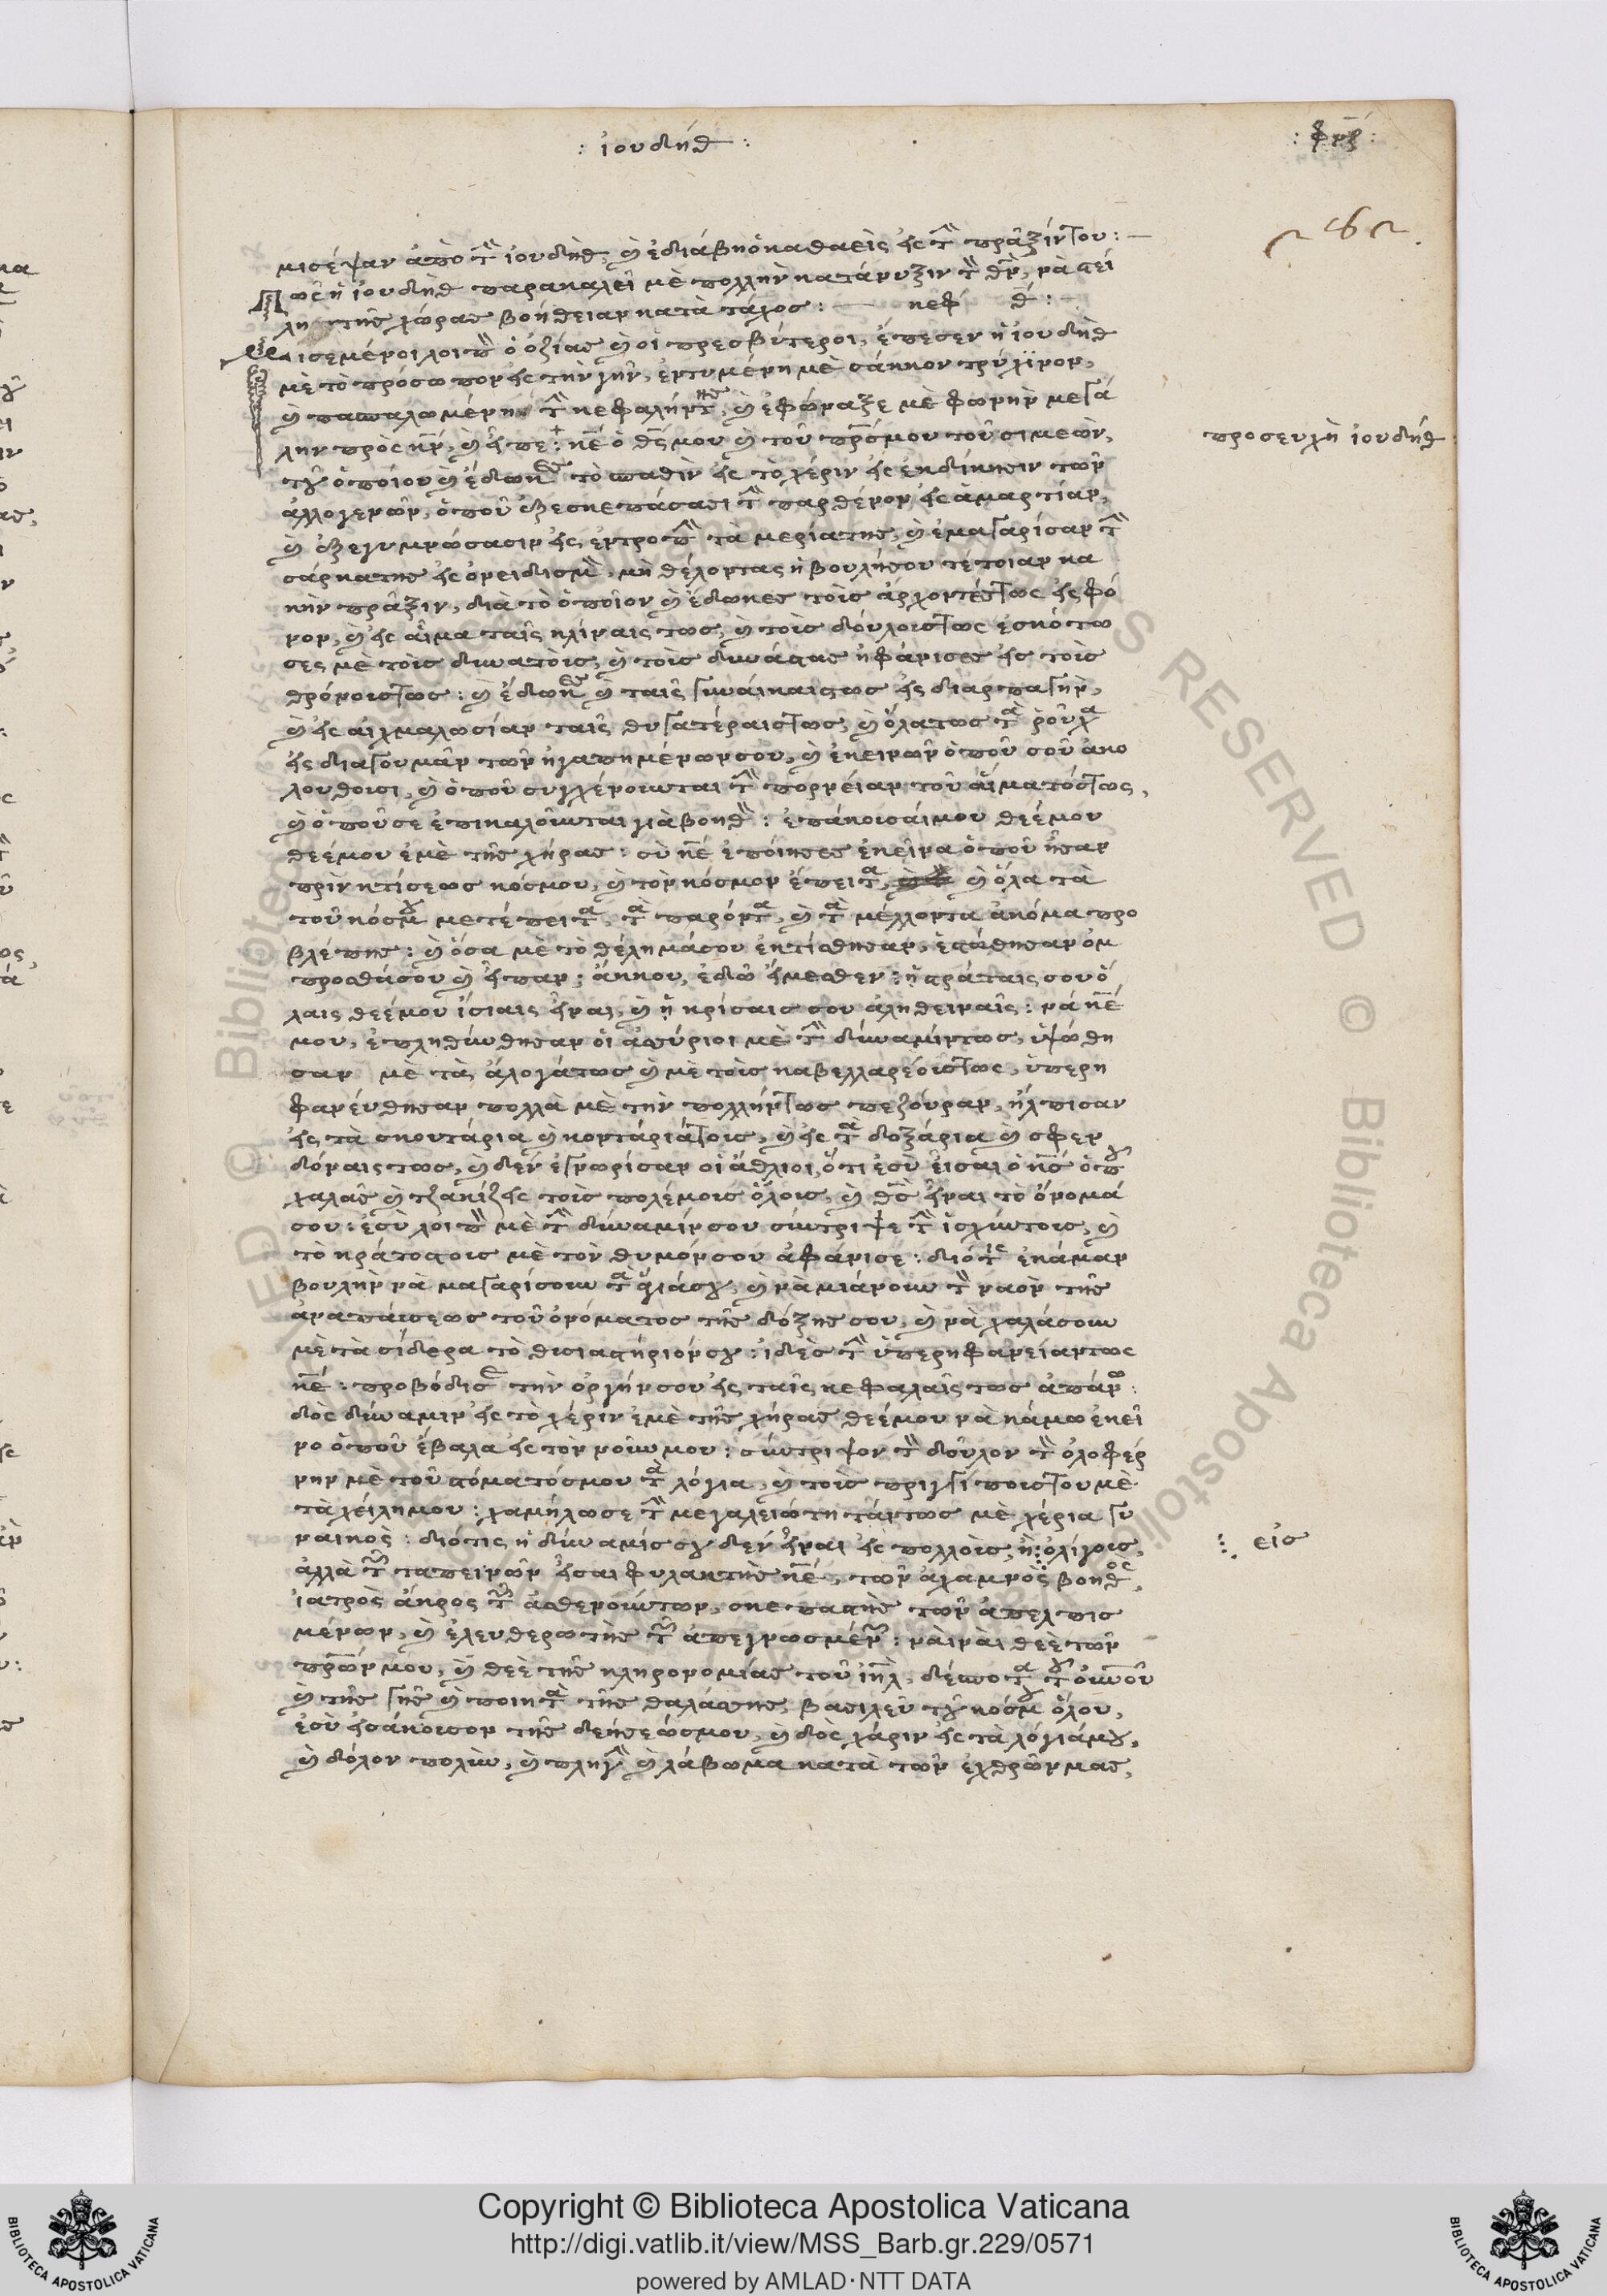 : ἰουδήθ :
: φπζ :
282
μισέψαν ἀπὸ τ̑ ἰουδὴθ, καὶ ἐδιάβη ὁ καθαεὶς εἰς τ̑ πράξίν του : —
Πῶς ἡ ἰουδὴθ παρακαλεῖ μὲ πολλὴν κατάνυξιν τ̀ θν̄, νὰ στεί
λη τῆς χώρας βοήθειαν κατὰ τάχος : — κεφ θ̄ :
Μισεμένοι λοιπ̀ ὁ ὀζίας καὶ οἱ πρεσβύτεροι, ἔπεσεν ἡ ἰουδὴθ
μὲ τὸ πρόσωπον εἰς τὴν γῆν, ἐντυμένη μὲ σάκκον τρύχινον,
καὶ πασπαλωμένη τ̑ κεφαλήν της, καὶ ἐφώναξε μὲ φωνὴν μεγά
λην πρὸς κν̄, καὶ εἶπε : κε̄ ὁ θς̄ μου καὶ τοῦ πρς̄ μου τοῦ σιμεὼν,
προσευχὴ ἰουδήθ
τοῦ ὁποίου καὶ ἔδωκες τὸ σπαθὶν εἰς τὸ χέριν εἰς ἐκδίκησιν τῶν
ἀλλογενῶν, ὁποῦ ἐξεσκεπάσασι τ̑ παρθένον εἰς ἁμαρτίαν,
καὶ ἐξεγυμνώσασιν εἰς ἐντροπ̑ τὰ μερία της, καὶ ἐμαγαρίσαν τ̑
σάρκα της εἰς ὀνειδισμὸ, μὴ θέλοντας ἡ βουλήσου τέτοιαν κα
κὴν πρᾶξιν, διὰ τὸ ὁποῖον καὶ ἔδωκες τοῖς ἄρχοντές τως εἰς φό
νον, καὶ εἰς αἷμα ταῖς κλίναις τως, καὶ τοῖς δούλοις τως ἐσκότω
σες μὲ τοῖς δυνατοὶς, καὶ τοῖς δυνάστας ἠφάνισες εἰς τοῖς
θρόνοις τως : καὶ ἔδωκες καὶ ταῖς γυναίκαις τως εἰς διαρπαγὴν,
καὶ εἰς αἰχμαλωσίαν ταῖς θυγατέραις τως, καὶ ὅλα τως τὰ ροῦχα
εἰς διαγουμᾶν τῶν ἠγαπημένων σου, καὶ ἐκεινῶν ὁποῦ σοῦ ἀκο
λουθοῦσι, καὶ ὁποῦ συγχένουνται τ̑ πορνείαν τοῦ αἵματός τως,
καὶ ὁποῦ σε ἐπικαλοῦνται γιὰ βοηθὸ : ἐπάκουσαί μου θεέ μου
θεέ μου ἐμὲ τῆς χήρας : σὺ κε̄ ἐποίησες ἐκεῖνα ὁποῦ ἦσαν
πρὶν κτίσεως κόσμου, καὶ τὸν κόσμον ἔπειτα, καὶ ὅλα τὰ
τοῦ κόσμου μετέπειτα, τὰ παρόντα, καὶ τὰ μέλλοντα ἀκόμα προ
βλέπης : καὶ ὅσα μὲ τὸ θέλημά σου ἐκτίσθησαν, ἐστάθησαν ὀμ
προσθά σου καὶ εἶπαν : ἄκκου, ἐδῶ εἴμεσθεν : ἡ στράταις σου ὅ
λαις θεέ μου ἴσιαις εἶναι, καὶ ἡ κρίσαις σου ἀληθειναῖς : νά κε̄
μου, ἐπληθύνθησαν οἱ ἀσσύριοι μὲ τ̑ δύναμίν τως, ὑψώθη
σαν μὲ τὰ ἄλογά τως καὶ μὲ τοὶς καβελλαρέοις τως, ὑπερη
φανεύθησαν πολλὰ μὲ τὴν πολλήν τως πεζούραν, ἤλπισαν
εἰς τὰ σκουτάρια καὶ κοντάριά τοις, καὶ εἰς τὰ δοξάρια καὶ σφεν
δόναις τως, καὶ δὲν ἐγνωρίσαν οἱ ἄθλιοι, ὅτι ἐσὺ εἶσαι ὁ κς̄ ὁποῦ
χαλᾶς καὶ τζακίζεις τοὶς πολέμοις ὅλοις, καὶ θς̄ εἶναι τὸ ὄνομά
σου : ἐσὺ λοιπ̀ μὲ τ̑ δύναμίν σου σύντριψε τ̑ ἰσχύν τοις, καὶ
τὸ κράτος τοις μὲ τὸν θυμόν σου ἀφάνισέ : διότις ἐκάμαν
βουλὴν νὰ μαγαρίσουν τὰ ἅγιά σου, καὶ νὰ μιάνουν τ̀ ναὸν τῆς
ἀναπαύσεως τοῦ ὀνόματος τῆς δόξης σου, καὶ νὰ χαλάσουν
μὲ τὰ σίδερα τὸ θυσιαστήριόν σου : ἰδὲς τ̑ ὑπερηφανείαν τως
κε̄ : προβόδισε τὴν ὀργήν σου εἰς ταῖς κεφαλαῖς τως ἀπάνω :
δὸς δύναμιν εἰς τὸ χέριν ἐμὲ τῆς χήρας θεέ μου νὰ κάμω ἐκεῖ
νο ὁποῦ ἔβαλα εἰς τὸν νοῦν μου : σύντριψον τ̀ δοῦλον τ̀ ὀλοφέρ
νην μὲ τοῦ στόματός μου τὰ λόγια, καὶ τοὶς πριγγίποις του μὲ
τὰ χείλη μου : χαμήλωσε τ̑ μεγαλειώτητά ντως μὲ χέρια γυ
ναικὸς : διότις ἡ δύναμίς σου δὲν εἶναι εἰς πολλοὶς, ἢ ⁝ ὀλίγοις,
⁝ εἰσ
ἀλλὰ τῶν ταπεινῶν εἶσαι φυλακτὴς κε̄, τῶν ἀχαμνῶν βοηθὸς,
ἰατρὸς ἄκρος τῶν ἀσθενούντων, σκεπαστὴς τῶν ἀπελπισ
μένων, καὶ ἐλευθερωτὴς τῶν ἀπεγνωσμένων : ναὶ ναὶ θεὲ τῶν
πρω̄ν μου, καὶ θεὲ τῆς κληρονομίας τοῦ ιη̄λ, δέσποτα τοῦ οὐν̄οῦ
καὶ τῆς γῆς καὶ ποιητὰ τῆς θαλάσσης, βασιλεῦ τοῦ κόσμου ὅλου,
ἐσὺ εἰσάκουσον τῆς δεησεώς μου, καὶ δὸς χάριν εἰς τὰ λόγιά μου,
καὶ δόλον πολὺν, καὶ πληγὴ καὶ λάβωμα κατὰ τῶν ἐχθρῶν μας,
Copyright © Biblioteca Apostolica Vaticana
http://digi.vatlib.it/view/MSS_Barb.gr.229/0571
powered by AMLAD·NTT DATA